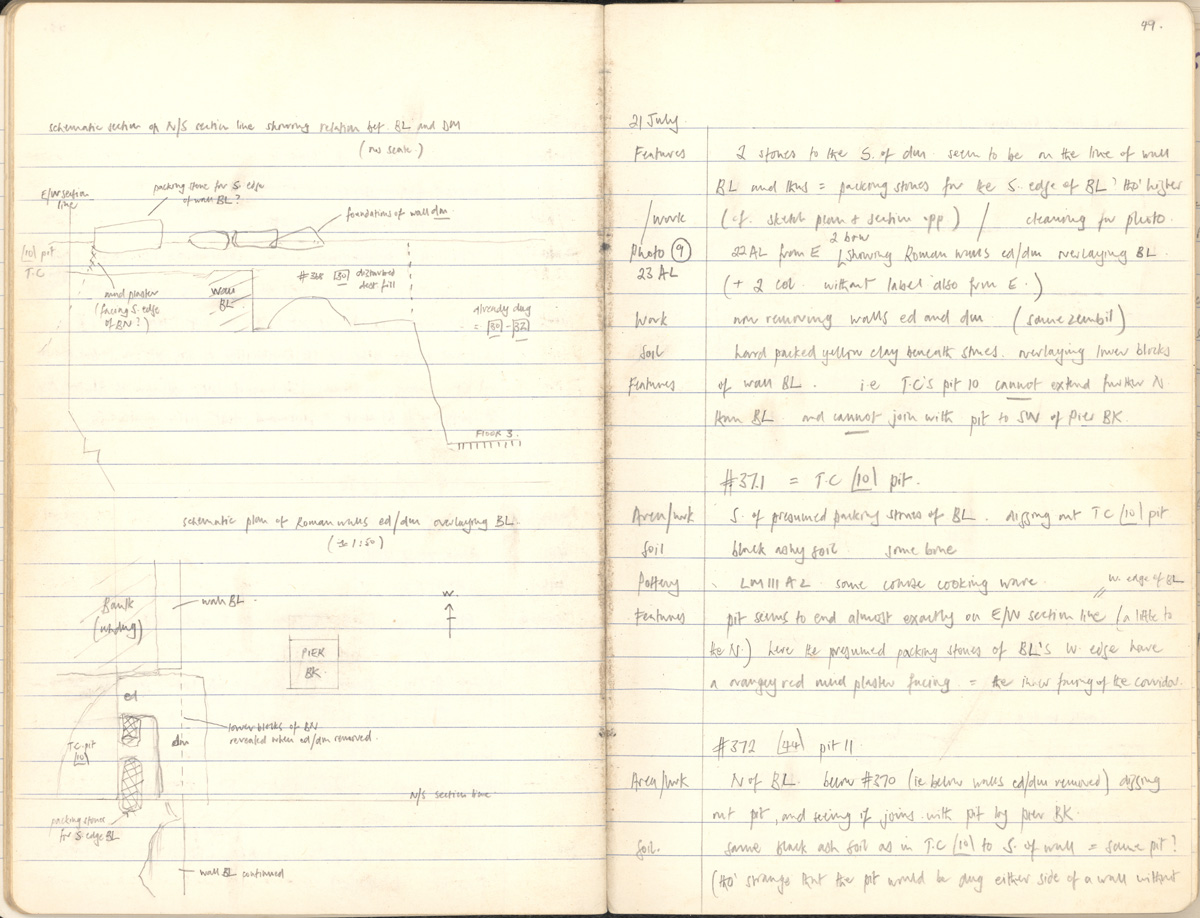 schematic section of N/S section line showing relation bet. BL and DM
(no scale)
E/W section
line
packing stone for S. edge
of wall BL?
foundations of wall dm
(10) pit
T.C
mud plaster
(facing S. edge
of BN?)
wall
BL
#368 [30] disturbed
dest fill
already dug
= [30] - [32]
FLOOR 3.
schematic plan of Roman walls ed/dm overlaying BL.
(± 1:50)
Bank
(undug)
wall BL.
N
PIER
BK.
ed
dm
T.C. pit
[10]
lower blocks of BN
revealed when ed/dm removed.
N/S section line
packing stones
for S. edge BL
wall BL continued
49.
21 July
Features 2 stones to the S. of dm. seem to be on the line of wall
BL and thus = packing stones for the S. edge of BL? tho' higher
/work (cf. sketch plan & section opp) / cleaning for photo.
Photo (9) 22AL from E 2 b+w showing Roman walls ed/dm overlaying BL.
23 AL (+ 2 col. without label also from E.)
Work now removing walls ed and dm (same zembil)
Soil hard packed yellow clay beneath stones. overlaying lower blocks
Features of wall BL. i.e T.C's pit 10 cannot extend further N
than BL. and cannot join with pit to SW of Pier BK.
#371 = T.C [10] pit.
Area/work S. of presumed packing stones of BL. digging out TC [10] pit
Soil black ashy soil some bone
Pottery LM III A2. some coarse cooking ware.
w. edge of BL
Features pit seems to end almost exactly on E/W section line (a little to
the N.) here the presumed packing stones of BL's W. edge have
a orangey red mud plaster facing = the inner facing of the corridor.
#372 [44] pit 11
Area/work N of BL. below #370 (ie below walls ed/dm removed) digging
out pit, and seeing if joins with pit by pier BK.
Soil. same black ash soil as in T.C [10] to S. of wall = same pit?
(tho' strange that the pit would be dug either side of a wall without